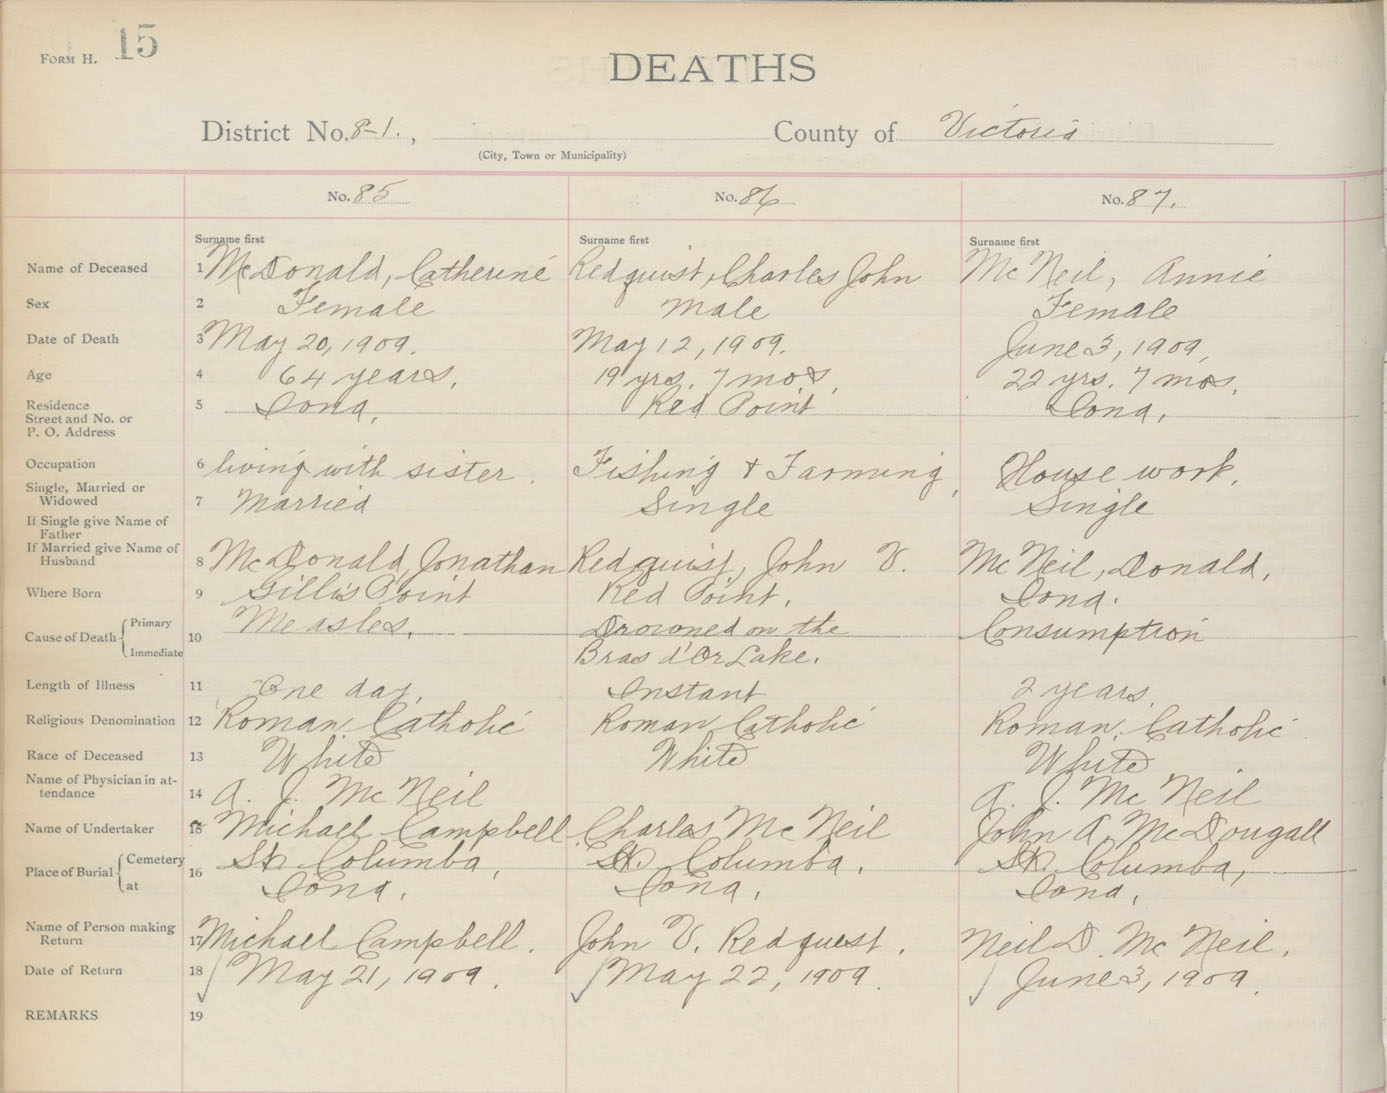 FORM H. 15
DEATHS
District No. 8-1. , County of Victoria
(City, Town or Municipality)
No. 85 No. 86 No. 87.
Surname first Surname first Surname first
Name of Deceased 1 McDonald, Catherine Redquist, Charles John McNeil, Annie
Sex 2 Female Male Female
Date of Death 3 May 20, 1909. May 12, 1909. June 3, 1909.
Age 4 64 years. 19 yrs. 7 mos. 22 yrs. 7 mos.
Residence
Street and No. or
P. O. Address 5 Iona. Red Point Iona.
Occupation 6 living with sister. Fishing & Farming, House work.
Single, Married or
Widowed 7 Married Single Single
If Single give Name of
Father
If Married give Name of
Husband 8 McDonald, Jonathan Redquist, John V. McNeil, Donald.
Where Born 9 Gillis Point Red Point. Iona.
Cause of Death { Primary Measles. Drowned on the Consumption
10
Immediate Bras d'Or Lake.
Length of Illness 11 One day. Instant 2 years.
Religious Denomination 12 Roman Catholic Roman Catholic Roman Catholic
Race of Deceased 13 White White White
Name of Physician in at-
tendance 14 A. J. McNeil A. J. McNeil
Name of Undertaker 15 Michael Campbell Charles McNeil John A. McDougall
Place of Burial { Cemetery St. Columba, St. Columba. St. Columba,
16
at Iona. Iona. Iona.
Name of Person making
Return 17 Michael Campbell. John V. Redquest. Neil D. McNeil.
Date of Return 18 May 21, 1909. May 22, 1909. June 3, 1909.
REMARKS 19